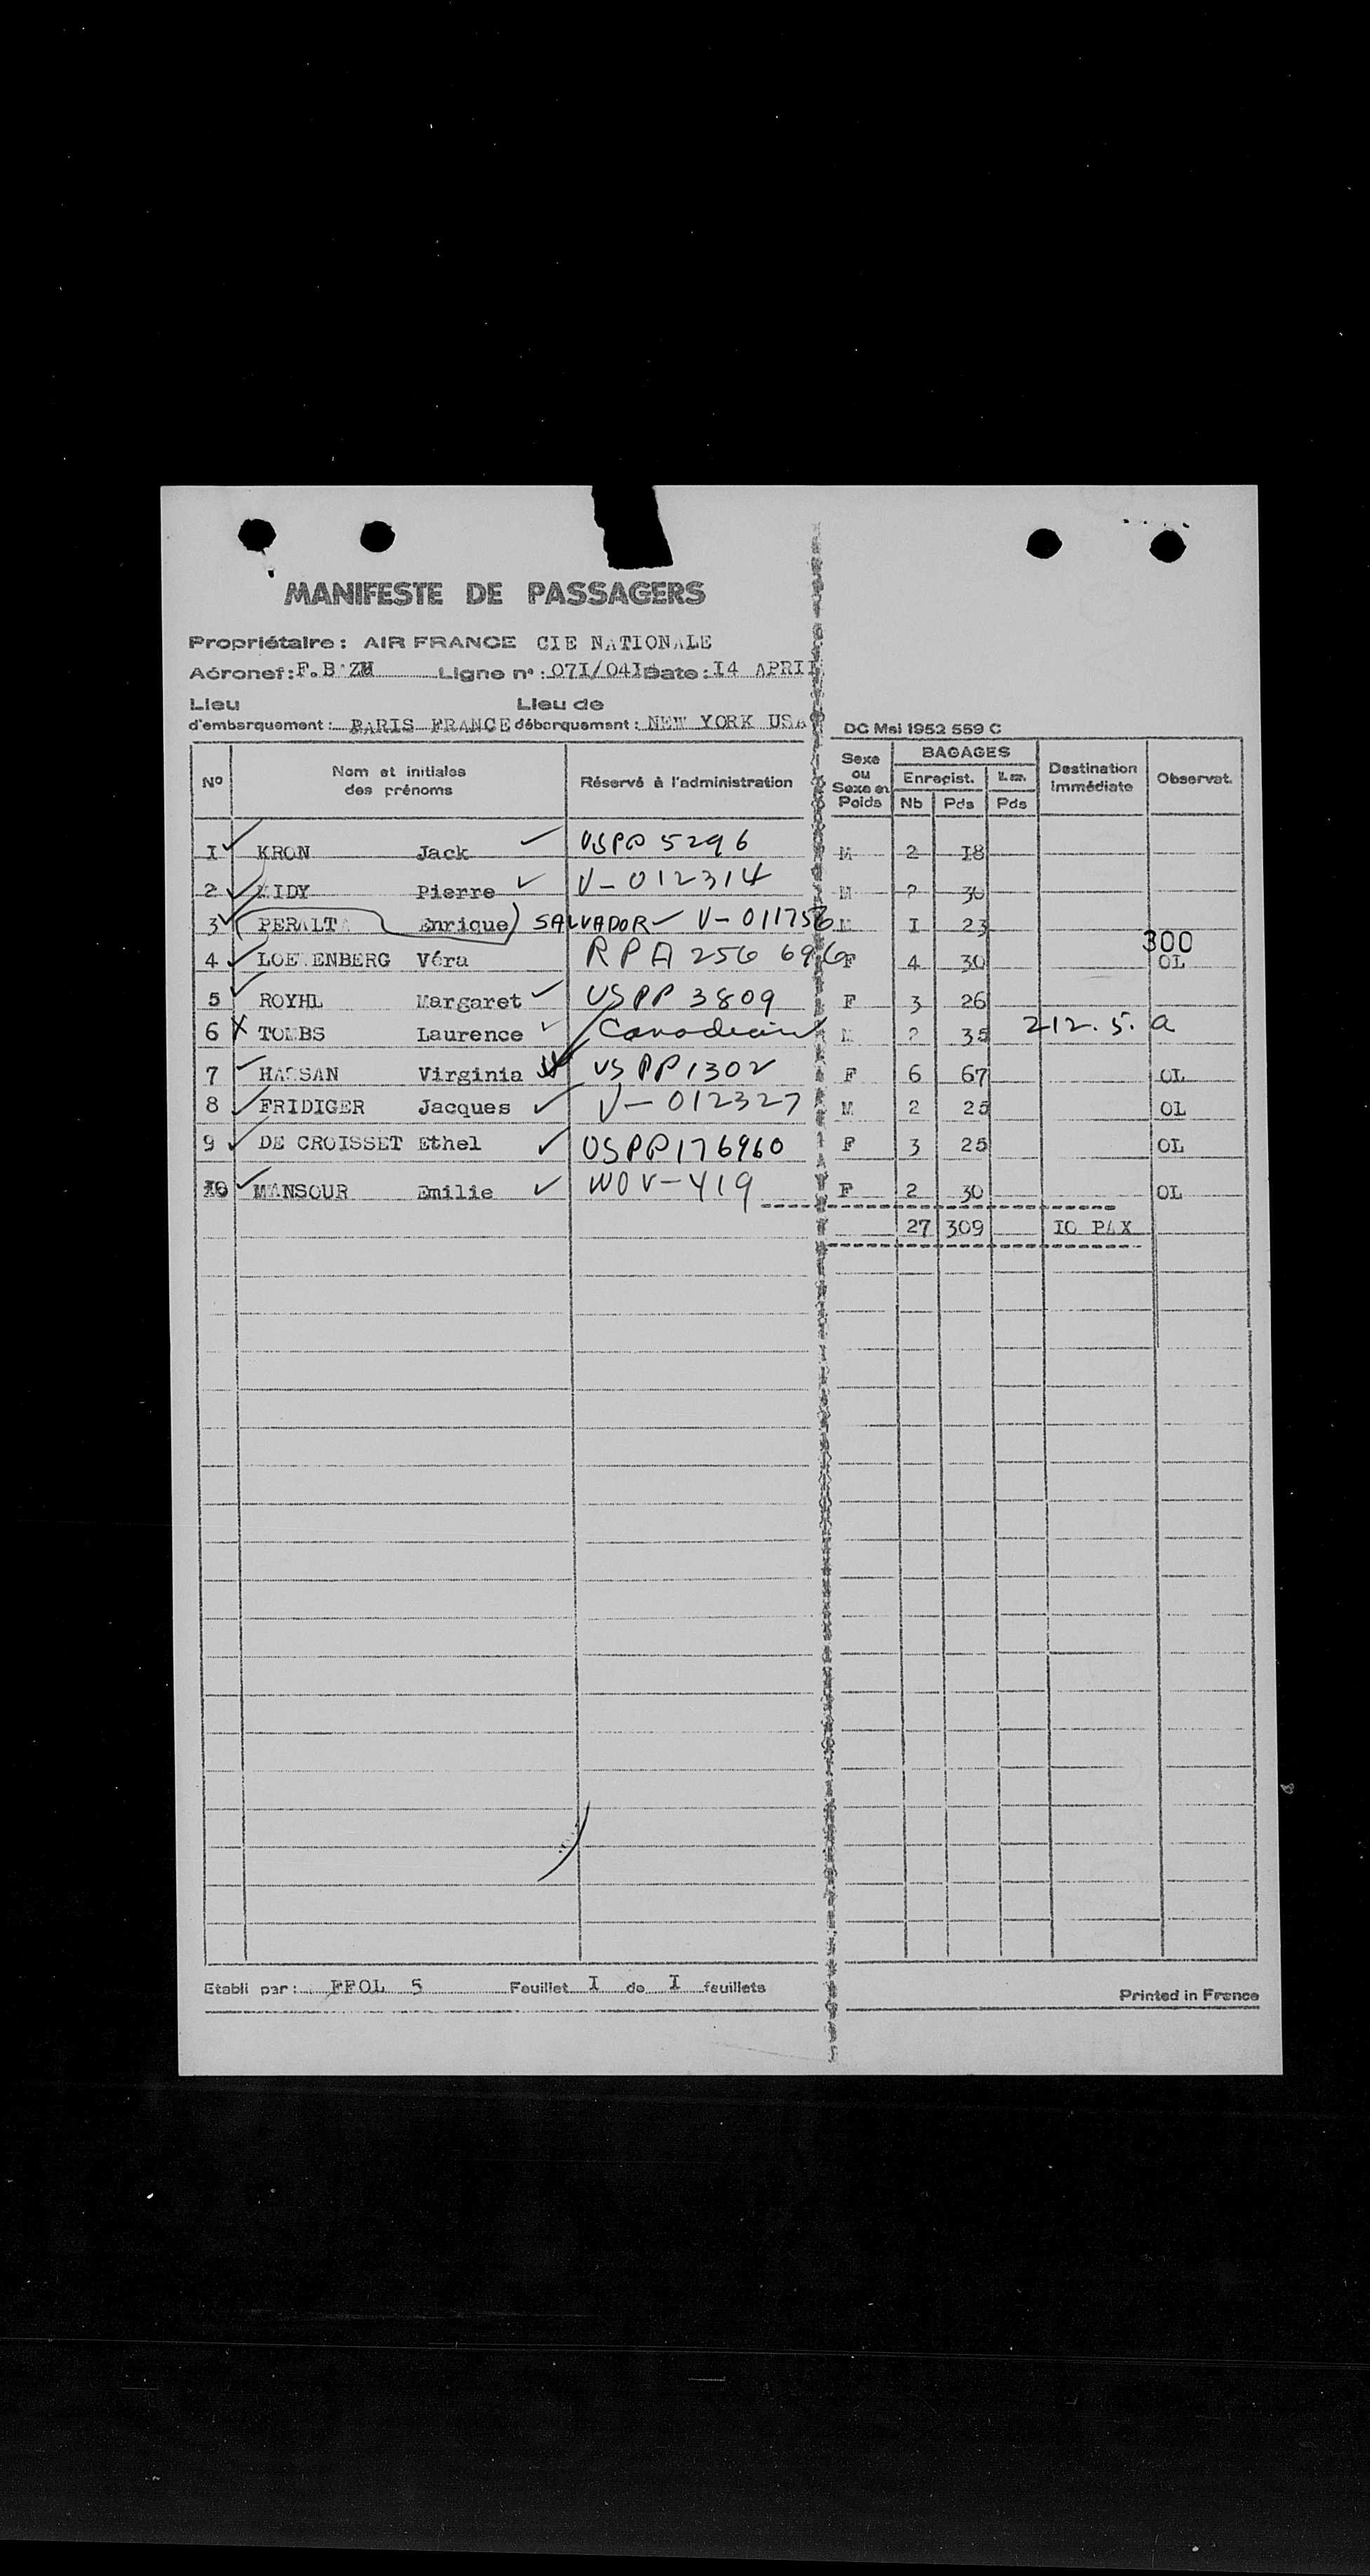 MANIFESTE DE PASSAGERS
Propriétaire : AIR FRANCE CIE NATIONALE
Aéronef : F.B ZM Ligne n° : 07I/04I Date : I4 APRIL
Lieu d'embarquement : PARIS FRANCE Lieu de débarquement : NEW YORK USA
DC Msi 1952 559 C
N° Nom et initiales des prénoms Réservé à l'administration Sexe ou Sexe en Poids BAGAGES Enregist. Nb Pds Pds Destination Immédiate Observat.
I KRON Jack USPP 5296 M 2 I8
2 MIDY Pierre V-012314 M 2 30
3 (PERALTA Enrique) SALVADOR V-011756 M I 23
300
4 LOEWENBERG Véra RPA 256 696 F 4 30 OL
5 ROYHL Margaret USPP 3809 F 3 26
6 X TOMBS Laurence Canadian M 2 35 212.5.a
7 HASSAN Virginia US PP 1302 F 6 67 OL
8 FRIDIGER Jacques V-012327 M 2 25 OL
9 DE CROISSET Ethel USPP 176960 F 3 25 OL
10 MANSOUR Emilie F 2 30 OL
27 309 IO PAX
Etabli par : FFOL 5 Feuillet I de I feuillets
Printed in France